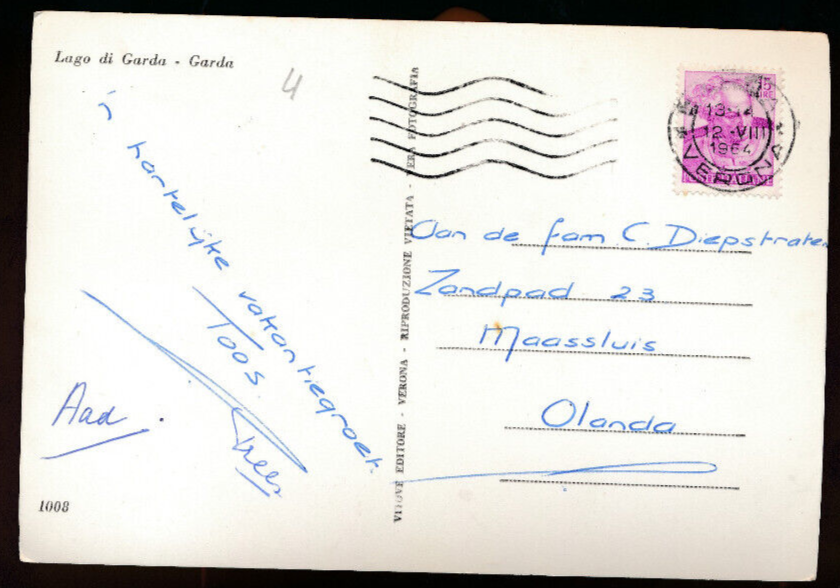 Lago di Garda - Garda
4
'n hartelijke vakantiegroet.
Toos.
Trees
Aad.
1008
VITOVE EDITORE - VERONA - RIPRODUZIONE VIETATA - VERA FOTOGRAFIA
13-14
12.-VIII
1964
VERONA
Aan de fam C. Diepstraten
Zandpad 23
Maassluis
Olanda